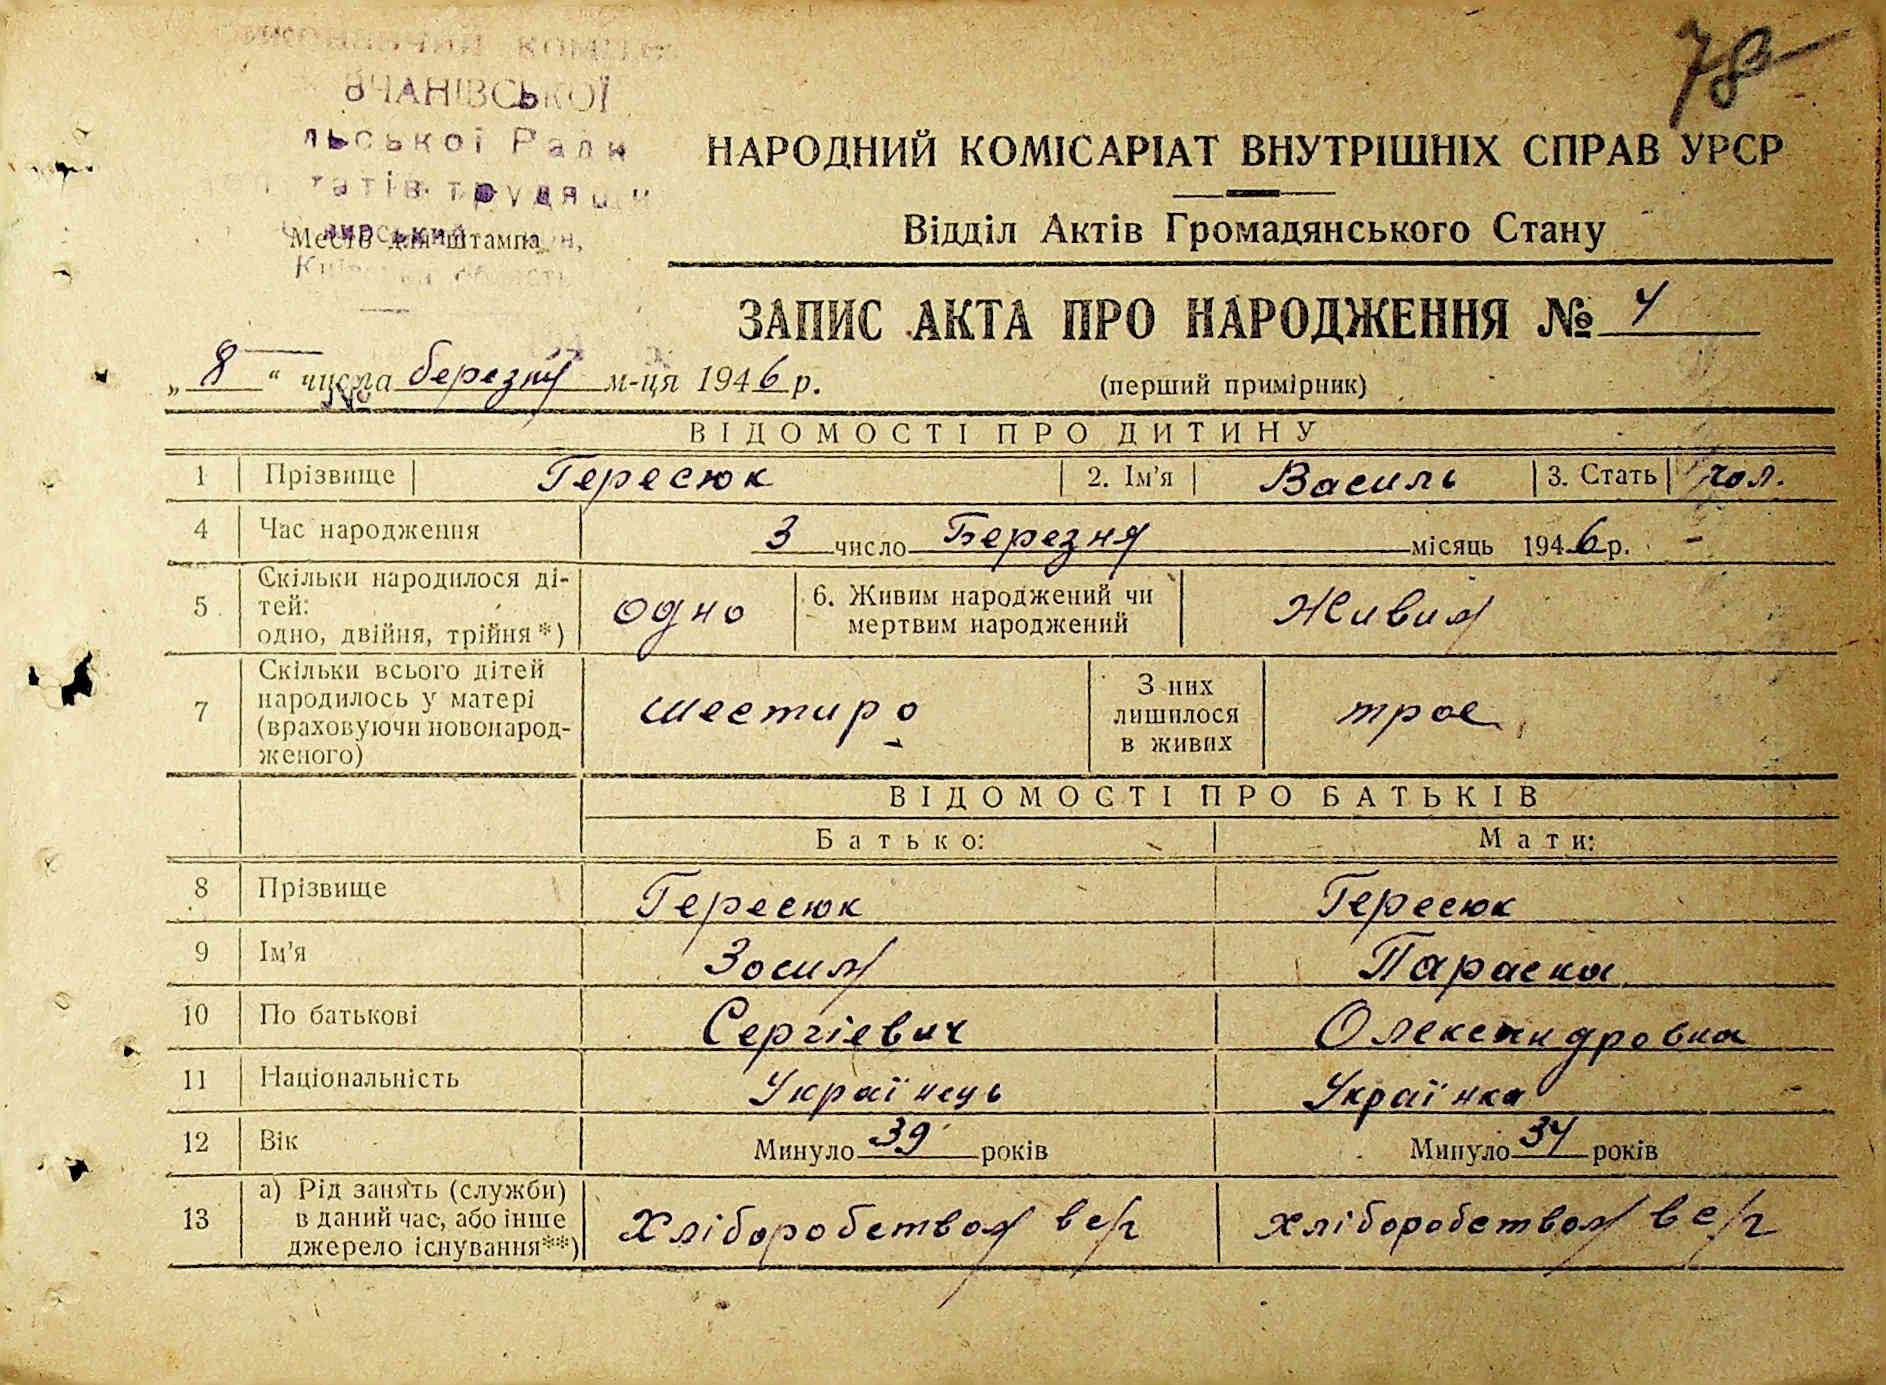 78
ВЧАНІВСЬКОЇ
льської Ради
татів трудящи
Место для штампа
НАРОДНИЙ КОМІСАРІАТ ВНУТРІШНІХ СПРАВ УРСР
Відділ Актів Громадянського Стану
ЗАПИС АКТА ПРО НАРОДЖЕННЯ № 4
„ 8 “ числа березня м-ця 1946 р.
(перший примірник)
ВІДОМОСТІ ПРО ДИТИНУ
1 Прізвище Гересюк 2. Ім'я Василь 3. Стать чол.
4 Час народження 3 число Березня місяць 1946 р.
5 Скільки народилося ді-
тей:
одно, двійня, трійня*) одно 6. Живим народжений чи
мертвим народжений Живим
7 Скільки всього дітей
народилось у матері
(враховуючи новонарод-
женого) шестиро З них
лишилося
в живих троє
ВІДОМОСТІ ПРО БАТЬКІВ
Батько: Мати:
8 Прізвище Гересюк Гересюк
9 Ім'я Зосим Параска
10 По батькові Сергієвич Олександровна
11 Національність Українець Українка
12 Вік Минуло 39 років Минуло 34 років
13 а) Рід занять (служби)
в даний час, або інше
джерело існування**) Хліборобством в с/г хліборобством в с/г